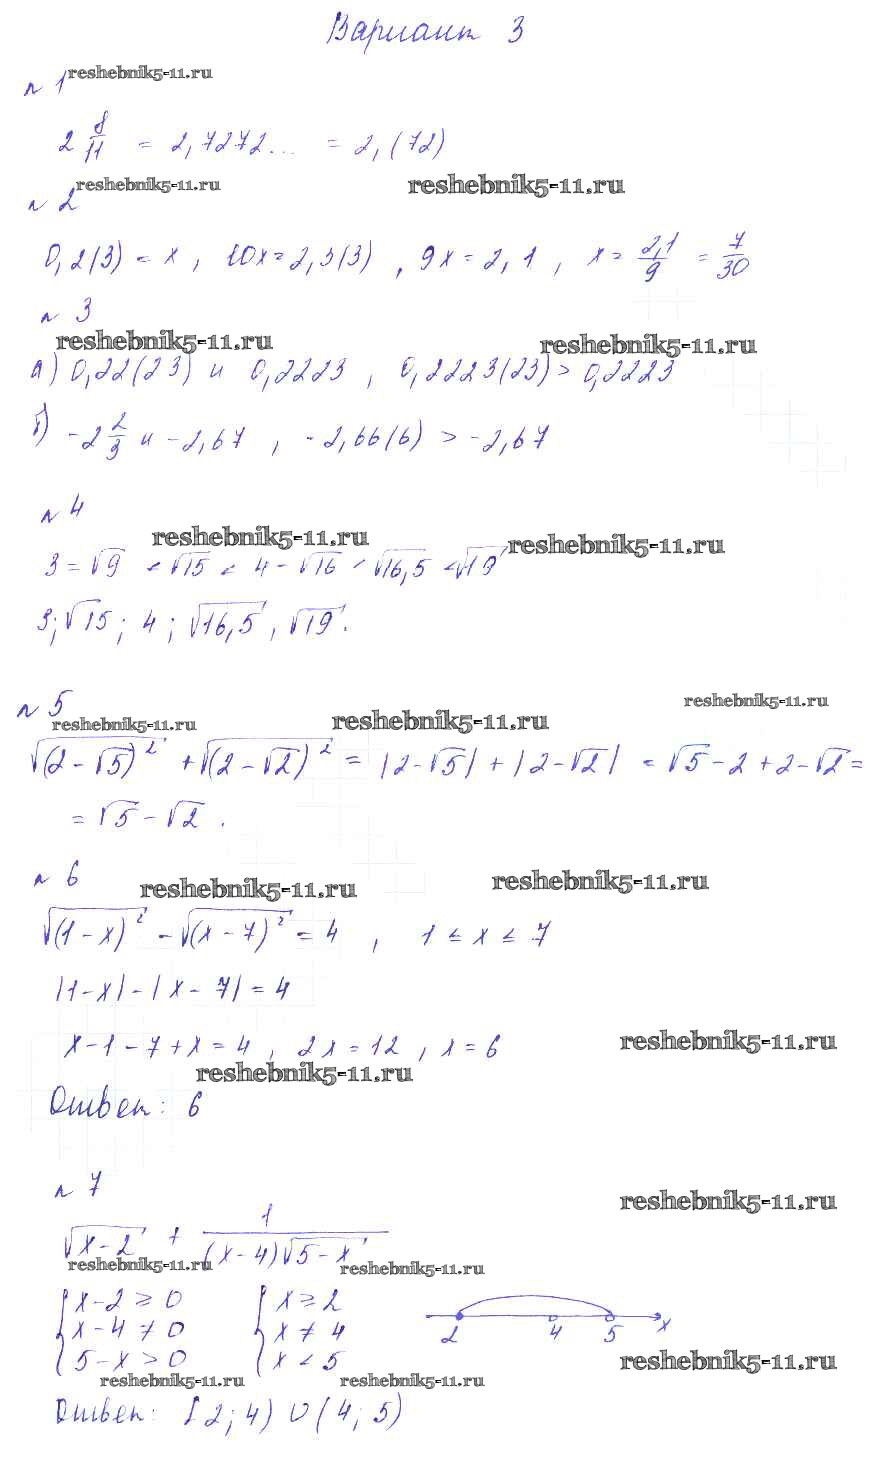 Вариант 3
n 1 reshebnik5-11.ru
2 8/11 = 2,7272... = 2,(72)
reshebnik5-11.ru reshebnik5-11.ru
n 2
0,2(3) = x , 10x = 2,3(3) , 9x = 2,1 , x = 2,1/9 = 7/30
n 3
reshebnik5-11.ru reshebnik5-11.ru
а) 0,22(23) и 0,2223 , 0,2223(23) > 0,2223
б) -2 2/3 и -2,67 , -2,66(6) > -2,67
n 4
reshebnik5-11.ru reshebnik5-11.ru
3 = √9 < √15 < 4 = √16 < √16,5 < √19
3; √15; 4; √16,5, √19.
n 5 reshebnik5-11.ru
reshebnik5-11.ru reshebnik5-11.ru
√(2-√5)² + √(2-√2)² = |2-√5| + |2-√2| = √5-2+2-√2 =
= √5-√2 .
n 6
reshebnik5-11.ru reshebnik5-11.ru
√(1-x)² - √(x-7)² = 4 , 1 ≤ x ≤ 7
|1-x| - |x-7| = 4
x-1-7+x = 4 , 2x = 12 , x = 6 reshebnik5-11.ru
reshebnik5-11.ru
Ответ: 6
n 7
reshebnik5-11.ru
√x-2 + 1/(x-4)√5-x
reshebnik5-11.ru reshebnik5-11.ru
{ x-2 ≥ 0 { x ≥ 2
x-4 ≠ 0 x ≠ 4 2 4 5 x
5-x > 0 x < 5 reshebnik5-11.ru
reshebnik5-11.ru reshebnik5-11.ru
Ответ: [2;4) ∪ (4;5)